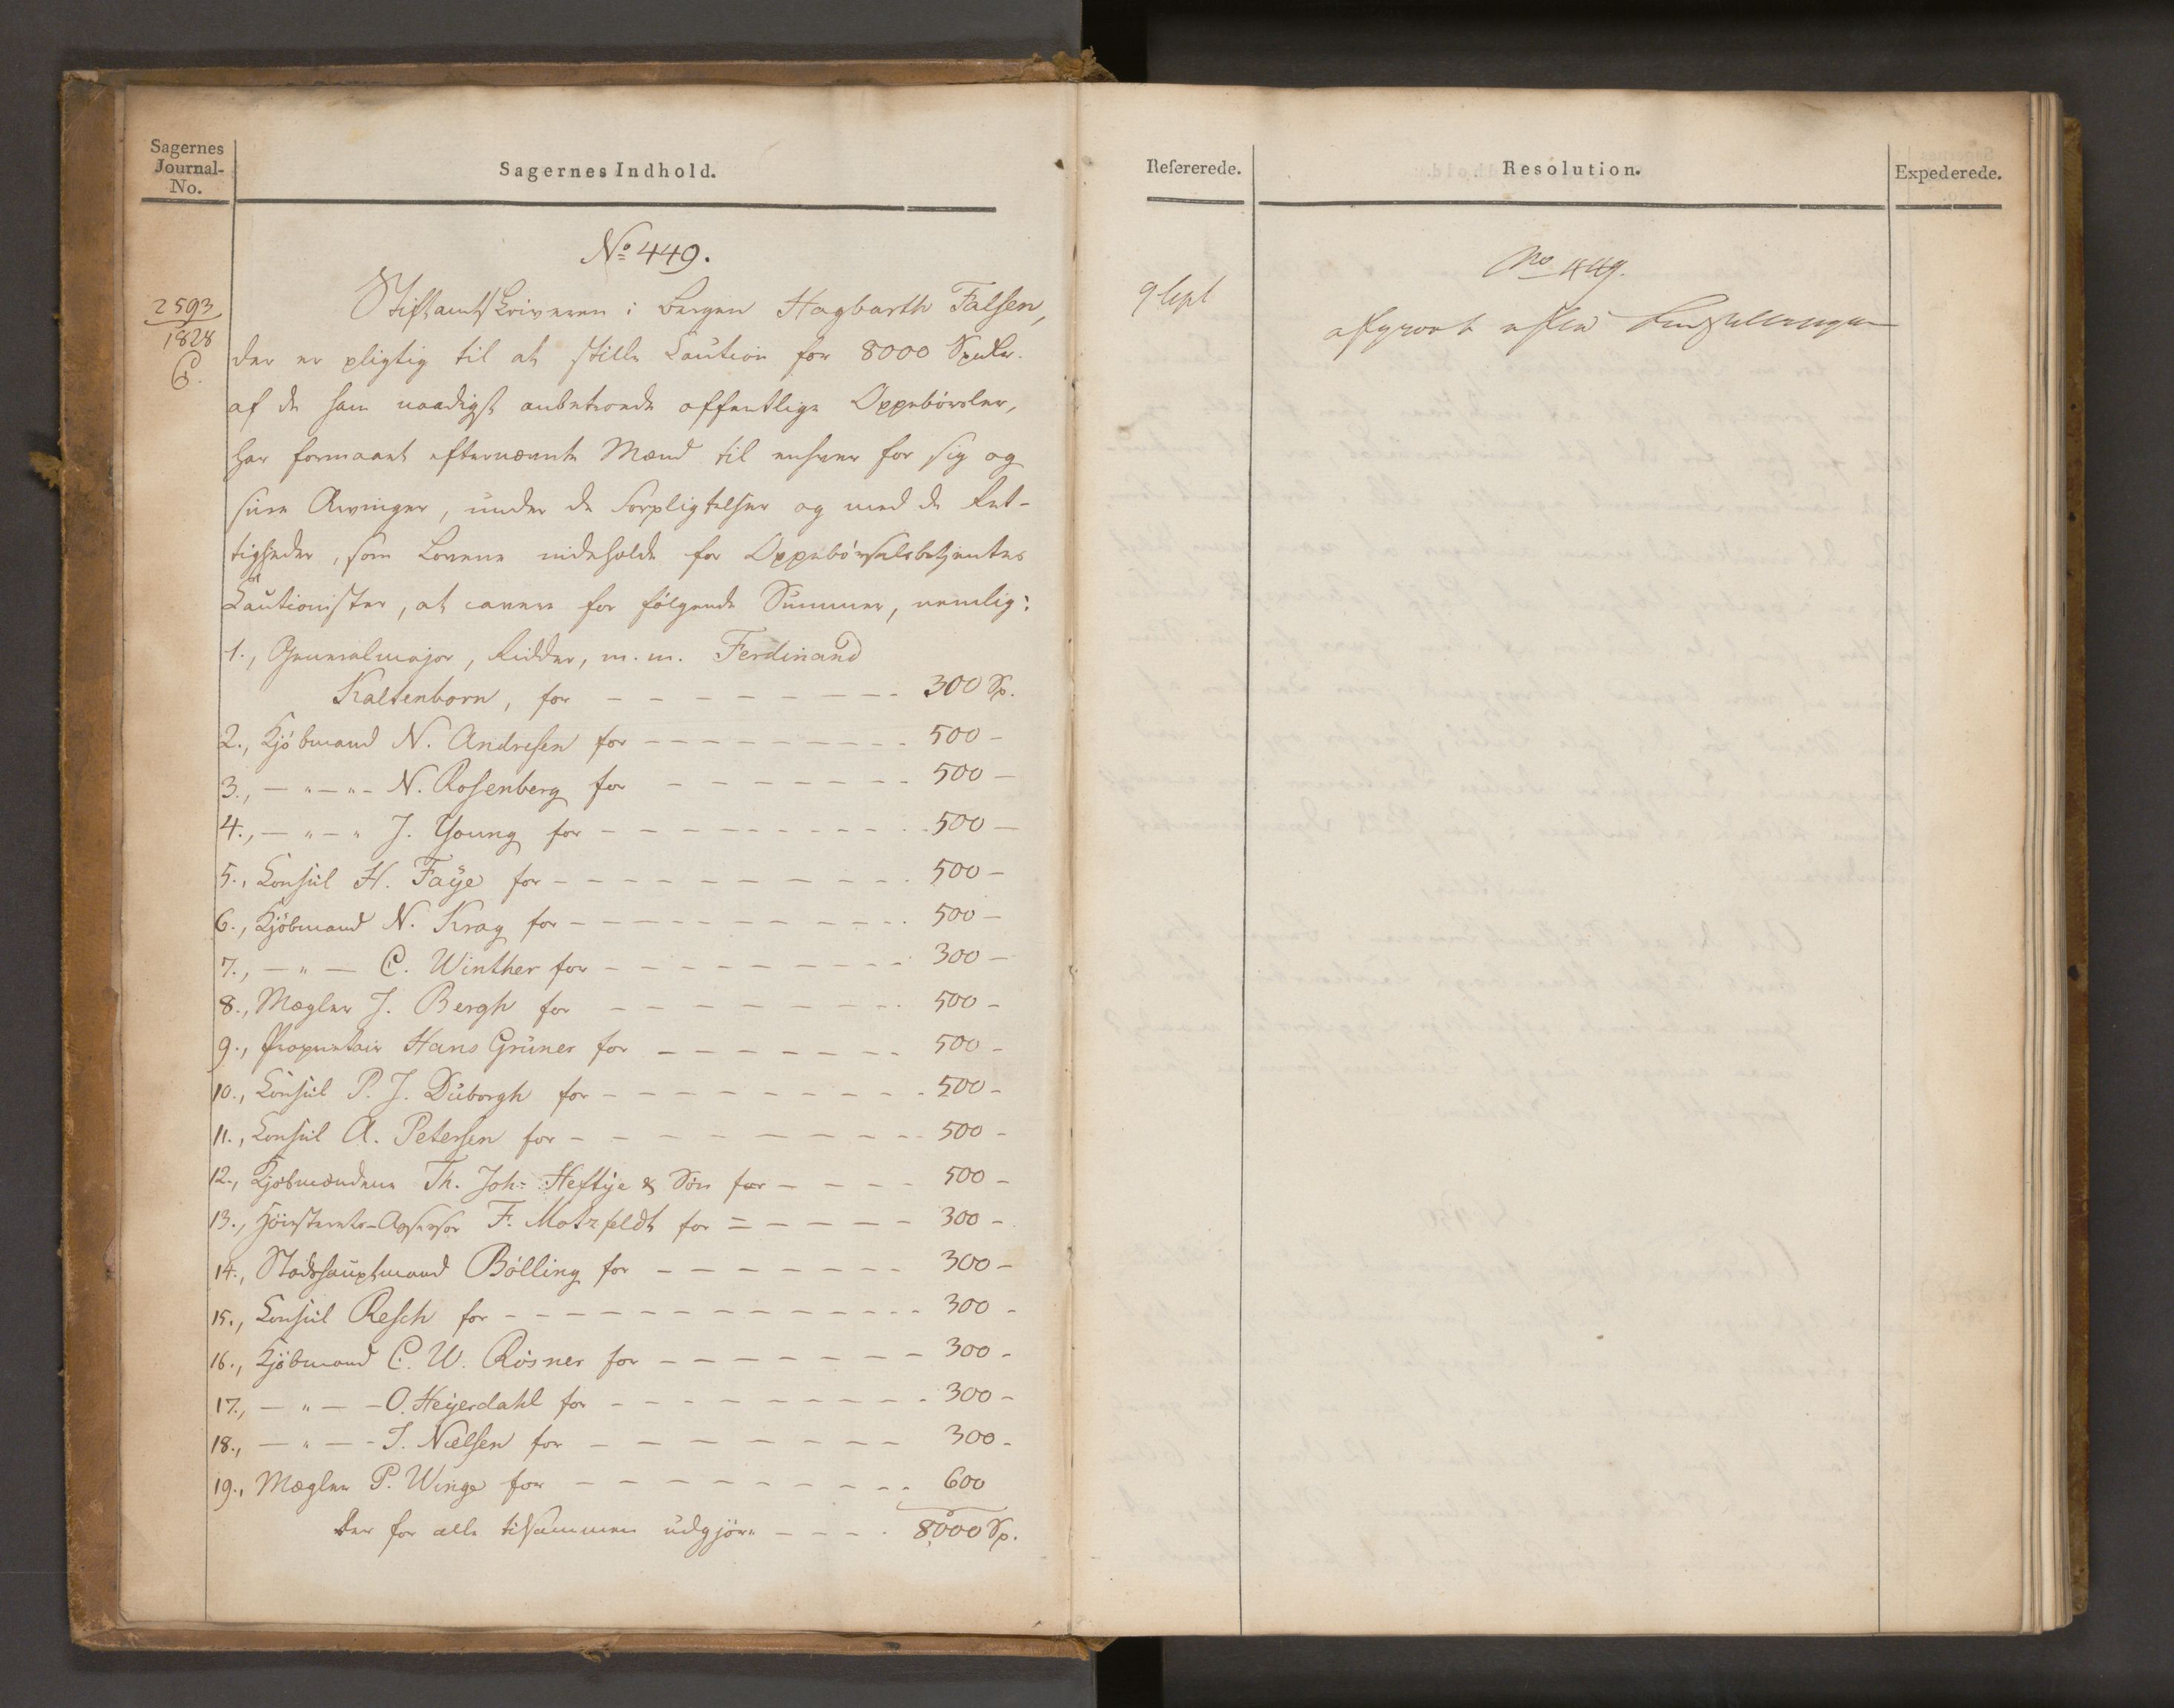 Sagernes
Journal-
No.
Sagernes Indhold.
No 449.
2593
1828
C.
Stiftamtskriveren i Bergen Hagbarth Falsen,
der er pligtig til at stille Caution for 8000 Spdlr.
af de ham naadigst anbetroede offentlige Oppebörsler,
har formaaet efternævnte Mænd til enhver for sig og
sine Arvinger, under de Forpligtelser og med de Ret-
tigheder, som Lovene indeholde for Oppebörselsbetjentes
Cautionister, at cavere for följende Summer, nemlig:
1., Generalmajor, Ridder, m. m. Ferdinand
Kaltenborn, for - - - - - - - - 300 Sp.
2., Kjöbmand N. Andresen for - - - - - - - - - 500 -
3., - " - " - N. Rosenberg for - - - - - - - - 500 -
4., - " - " J. Young for - - - - - - - - - - 500 -
5., Consul H. Faÿe for - - - - - - - - - - 500 -
6., Kjöbmand N. Krag for - - - - - - - - - - 500 -
7., - " - C. Winther for - - - - - - - - - 300 -
8., Mægler J. Bergh for - - - - - - - - 500 -
9., Proprietair Hans Grüner for - - - - - - - 500 -
10., Consul P. J. Duborgh for - - - - - - - - - - 500 -
11., Consul A. Petersen for - - - - - - - - - 500 -
12., Kjöbmændene Th. Joh: Heftÿe & Sön for - - - - 500 -
13., Höiesterets-Assessor F. Motzfeldt for = - - - - 300 -
14., Stadshauptmand Bölling for - - - - - - - 300 -
15., Consul Resch for - - - - - - - - - - - - - 300 -
16., Kjöbmand C. W. Rösner for - - - - - - - - 300 -
17., - " - - O. Heÿerdahl for - - - - - - - - - 300 -
18., - " - - J. Nielsen for - - - - - - - - 300 -
19., Mægler P. Winge for - - - - - - - - - 600
der for alle tilsammen udgjöre - - - - 8,000 Sp.
Refererede.
Resolution.
Expederede.
No 449.
9 Sept
afgjort efter Indstillingen